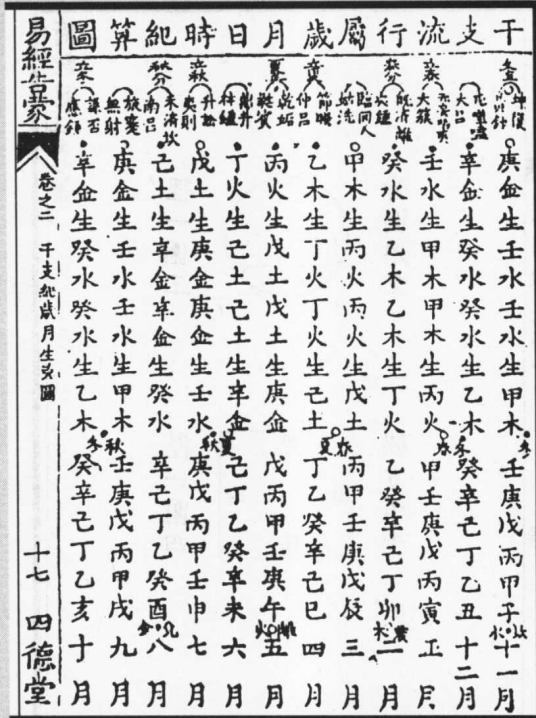 干支流行屬歲月日時紀算圖
冬至
庚金生壬水壬水生甲木
冬
壬庚戊丙甲子十一月
大呂
辛金生癸水癸水生乙木
癸辛己丁乙丑十二月
大簇
壬水生甲木甲木生丙火
甲壬庚戊丙寅正月
既濟離
癸水生乙木乙木生丁火
乙癸辛己丁卯二月
震木
臨同人
甲木生丙火丙火生戊土
丙甲壬庚戊辰三月
節睽
仲呂
乙木生丁火丁火生己土
夏
丁乙癸辛己巳四月
蕤賓
丙火生戊土戊土生庚金
戊丙甲壬庚午五月
離火
林鐘
丁火生己土己土生辛金
夏
己丁乙癸辛未六月
夷則
戊土生庚金庚金生壬水
秋
庚戊丙甲壬申七月
未濟坎
南呂
己土生辛金辛金生癸水
辛己丁乙癸酉八月
兌金
旅蹇
無射
庚金生壬水壬水生甲木
秋
壬庚戊丙甲戌九月
謙否
應鐘
辛金生癸水癸水生乙木
冬
癸辛己丁乙亥十月
易經告蒙
卷之二 干支紀歲月生爻圖
十七 四德堂